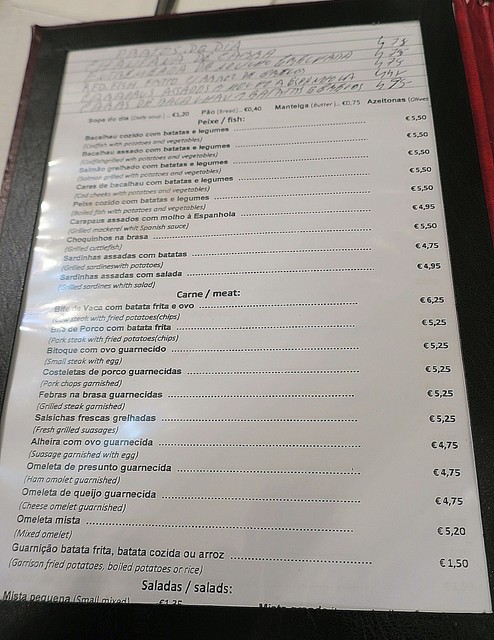 PRATOS DO DIA
4,75
4,75
GRELHADA 4,75
RED FISH 4,75
ASSADOS ESPANHOLA
Sopa do dia (Daily soup) .. €1,20 Pão (Bread).. €0,40 Manteiga (Butter) .. €0,75 Azeitonas (Olives
Peixe / fish:
Bacalhau cozido com batatas e legumes €5,50
(Codfish with potatoes and vegetables)
Bacalhau assado com batatas e legumes €5,50
(Codfishgrilled wih potatoes and vegetables)
Salmão grelhado com batatas e legumes €5,50
(Salmon grilled with potatoes and vegetables)
Caras de bacalhau com batatas e legumes €5,50
(Cod cheeks with potatoes and vegetables)
Peixe cozido com batatas e legumes €5,50
(Boiled fish with potatoes and vegetables)
Carapaus assados com molho à Espanhola €4,95
(Grilled mackerel whit Spanish sauce)
Choquinhos na brasa €5,50
(Grilled cuttlefish)
Sardinhas assadas com batatas €4,75
(Grilled sardineswith potatoes)
Sardinhas assadas com salada €4,95
(Grilled sardines whith salad)
Carne / meat:
Bife de Vaca com batata frita e ovo €6,25
steak with fried potatoes(chips)
Bife de Porco com batata frita €5,25
(Pork steak with fried potatoes(chips)
Bitoque com ovo guarnecido €5,25
(Small steak with egg)
Costeletas de porco guarnecidas €5,25
(Pork chops garnished)
Febras na brasa guarnecidas €5,25
(Grilled steak garnished)
Salsichas frescas grelhadas €5,25
(Fresh grilled suasages)
Alheira com ovo guarnecida €4,75
(Suasage garnished with egg)
Omeleta de presunto guarnecida €4,75
(Ham omalet guarnished)
Omeleta de queijo guarnecida €4,75
(Cheese omelet guarnished)
Omeleta mista €5,20
(Mixed omelet)
Guarnição batata frita, batata cozida ou arroz €1,50
(Garrison fried potatoes, boiled potatoes or rice)
Saladas / salads:
Mista pequena (Small mixed) €1,25 Mista